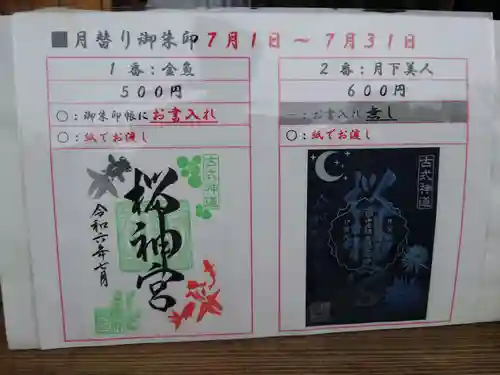 ■月替り御朱印 7月1日 ～ 7月31日
1番：金魚
500円
○：御朱印帳にお書入れ
○：紙でお渡し
2番：月下美人
600円
－：お書入れ無し
○：紙でお渡し
古式神道
桜神宮
令和六年七月
古式神道
桜神宮